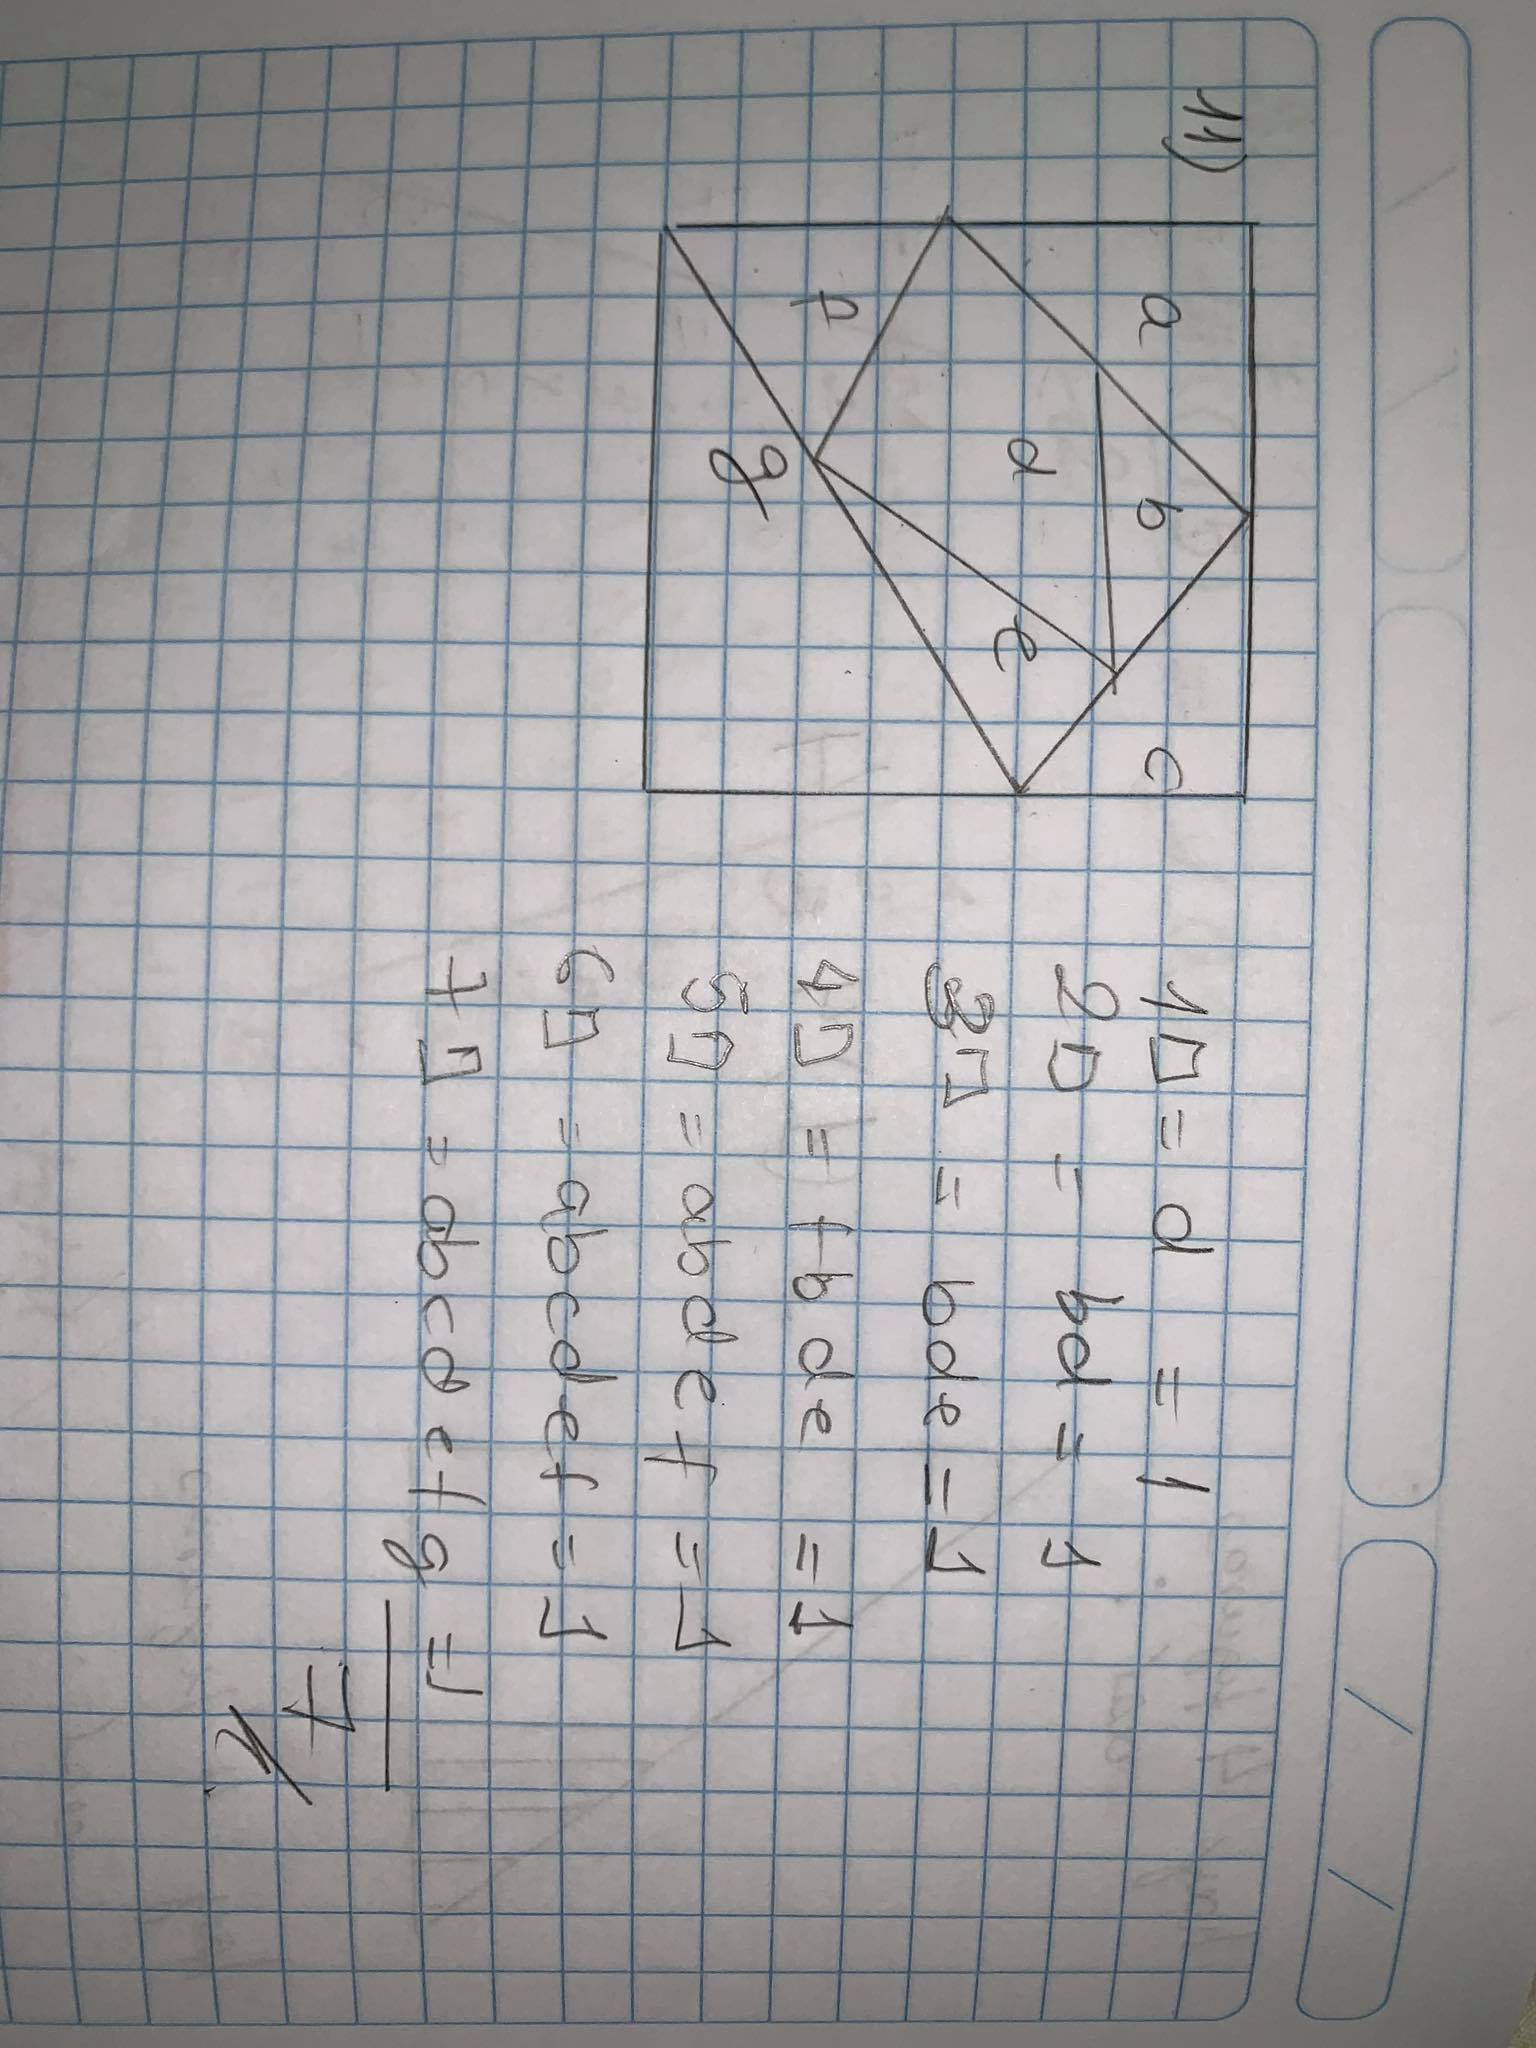 11)
a
b
c
d
e
f
g
1□ = d = 1
2□ = bd = 1
3□ = bde = 1
4□ = fbde = 1
5□ = abdef = 1
6□ = abcdef = 1
7□ = abcdefg = 1
7